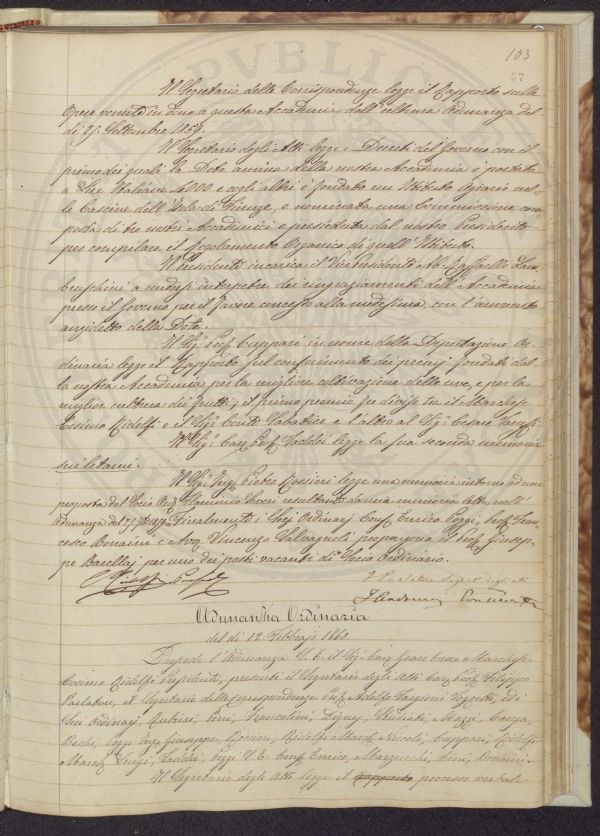 103
57
Il Segretario delle Corrispondenze legge il Rapporto sulle
Opere venute in dono a questa Accademia dall'ultima Adunanza del
dì 25 Settembre 1859.
Il Segretario degli Atti legge i Decreti del Governo con il
primo dei quali la Dote annua della nostra Accademia è portata
a Lire Italiane 4000 e cogli altri è fondato un Istituto Agrario nel-
le Cascine dell'Isola di Firenze, e nominata una Commissione com-
posta di tre nostri Accademici e presieduta dal nostro Presidente
per compilare il Regolamento Organico di quell'Istituto.
Il Presidente incarica il Vice Presidente Ab. Raffaello Lam-
bruschini a rendersi interpetre dei ringraziamenti dell'Accademia
presso il Governo per il favore concesso alla medesima, con l'aumento
anzidetto della Dote.
Il Sig. Prof. Cuppari in nome della Deputazione Or-
dinaria legge il Rapporto sul conferimento dei premj fondati dal-
la nostra Accademia per la migliore coltivazione delle uve, e per la
miglior cultura dei frutti; il primo premio fu diviso tra il Marchese
Cosimo Ridolfi e il Sig. Conte e l'altro al Sig. Cesare
Il Sig. Cav. Prof. Taddei legge la sua seconda memoria
sui letami.
Il Sig. Ing. Pietro Rossini legge una memoria intorno ad una
proposta del Socio Ord. resultante da una memoria letta nell'
Adunanza del Finalmente i Socj Ordinarj Cav. Enrico Poggi, Prof. Fran-
cesco Bonaini e Avv. Vincenzo Salvagnoli propongono il Prof. Giusep-
pe Barellai per uno dei posti vacanti di Socio Ordinario.
F. Parlatore Segr. degli Atti
Adunanza Ordinaria
del dì 12 Febbrajo 1860
Presiede l'Adunanza S. E. il Sig. Cav. Gran Croce Marchese
Cosimo Ridolfi Presidente, presenti il Segretario degli Atti Cav. Prof. Filippo
Parlatore, il Segretario delle Corrispondenze Prof. Adolfo Targioni Tozzetti, ed i
Socj Ordinarj Rubieri, Franceschi, Digny, Studiati, Mazzi,
Bechi, Poggi Ing. Giuseppe, Rossini, Ridolfi March. Niccolò, Cuppari, Ridolfi
March. Luigi, Taddei, Poggi S. E. Cav. Enrico, Marzucchi, Bonaini.
Il Segretario degli Atti legge il rapporto processo verbal-